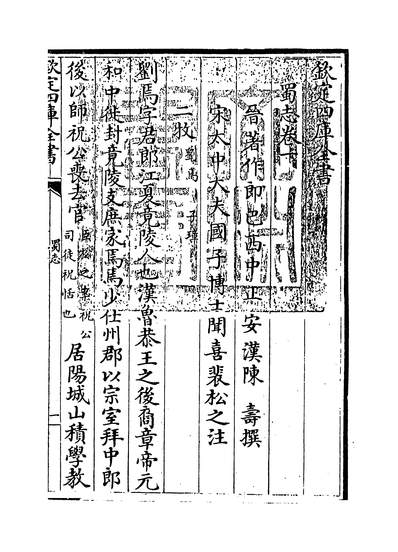 欽定四庫全書
蜀志卷
晉著作郎巴西中正安漢陳壽撰
宋太中大夫國子博士聞喜裴松之注
二牧 劉焉 子璋
劉焉字君郎江夏竟陵人也漢魯恭王之後裔章帝元
和中徙封竟陵支庶家焉焉少仕州郡以宗室拜中郎
後以師祝公喪去官臣松之案祝公司徒祝恬也居陽城山積學教
欽定四庫全書
蜀志
一